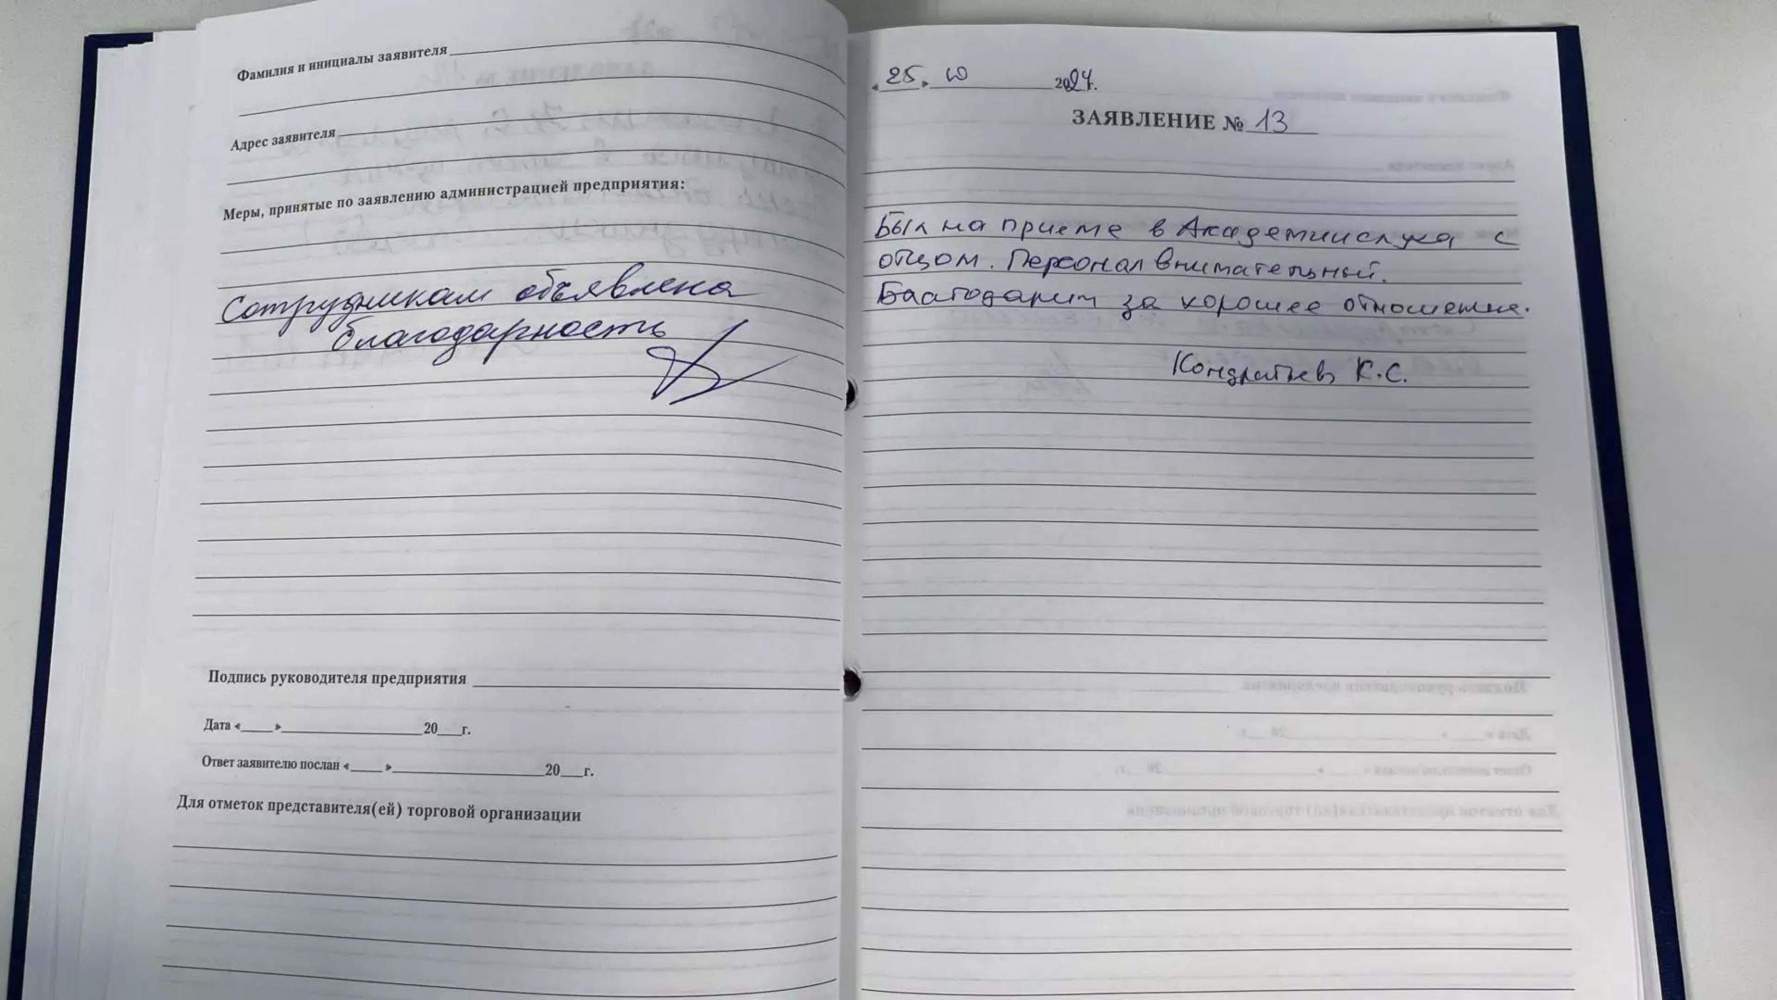 Фамилия и инициалы заявителя
Адрес заявителя
Меры, принятые по заявлению администрацией предприятия:
Сотрудникам объявлена
благодарность
Подпись руководителя предприятия
Дата «____»____________20___г.
Ответ заявителю послан «____»____________20___г.
Для отметок представителя(ей) торговой организации
«25» 10 2024г.
ЗАЯВЛЕНИЕ № 13
Был на приеме в Академии слуха с
отцом. Персонал внимательный.
Благодарим за хорошее отношение.
Кондратьев К.С.